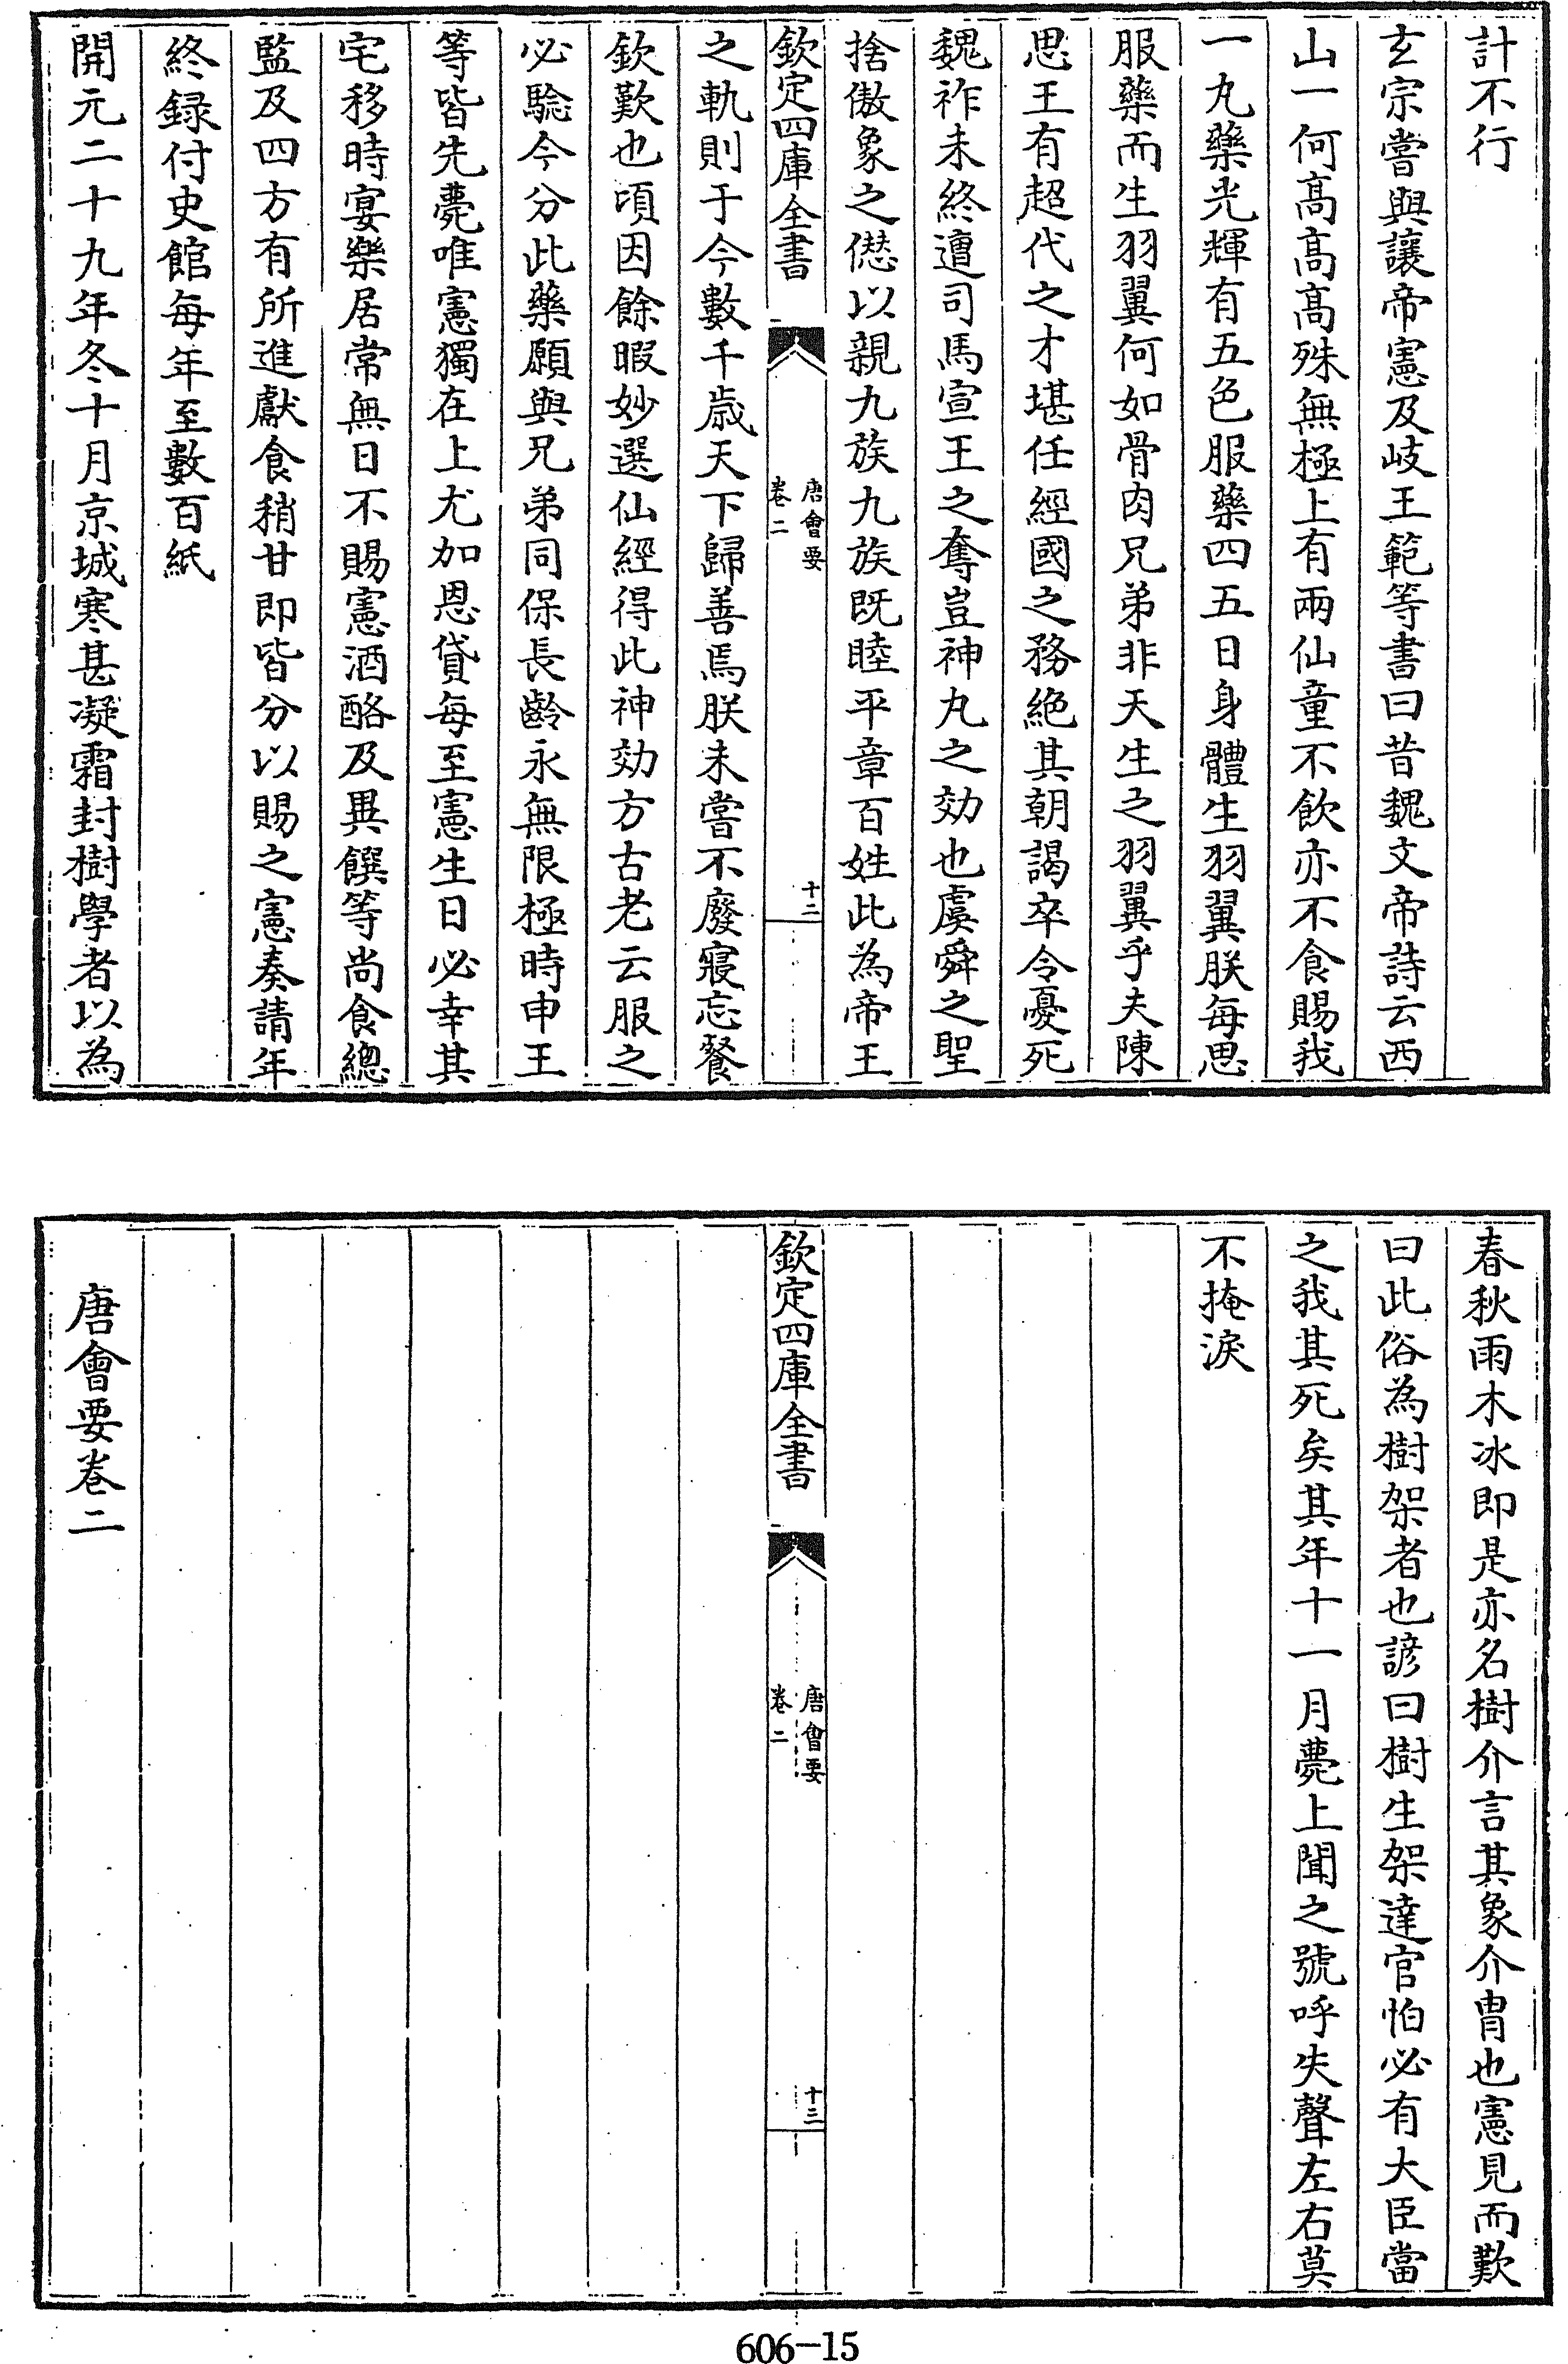 計不行
玄宗嘗與讓帝憲及岐王範等書曰昔魏文帝詩云西
山一何高高高殊無極上有兩仙童不飲亦不食賜我
一丸藥光輝有五色服藥四五日身體生羽翼朕每思
服藥而生羽翼何如骨肉兄弟非天生之羽翼乎夫陳
思王有超代之才堪任經國之務絶其朝謁卒令憂死
魏祚未終遭司馬宣王之奪豈神丸之効也虞舜之聖
捨傲象之愆以親九族九族既睦平章百姓此為帝王
欽定四庫全書
唐會要
卷二
十二
之軌則于今數千歳天下歸善焉朕未嘗不廢寢忘餐
欽歎也頃因餘暇妙選仙經得此神効方古老云服之
必騐今分此藥願與兄弟同保長齡永無限極時申王
等皆先薨唯憲獨在上尤加恩貸每至憲生日必幸其
宅移時宴樂居常無日不賜憲酒酪及異饌等尚食總
監及四方有所進獻食稍甘即皆分以賜之憲奏請年
終録付史館每年至數百紙
開元二十九年冬十月京城寒甚凝霜封樹學者以為
春秋雨木冰即是亦名樹介言其象介冑也憲見而歎
曰此俗為樹架者也諺曰樹生架達官怕必有大臣當
之我其死矣其年十一月薨上聞之號呼失聲左右莫
不掩淚
欽定四庫全書
唐會要
卷二
十三
唐會要卷二
606-15